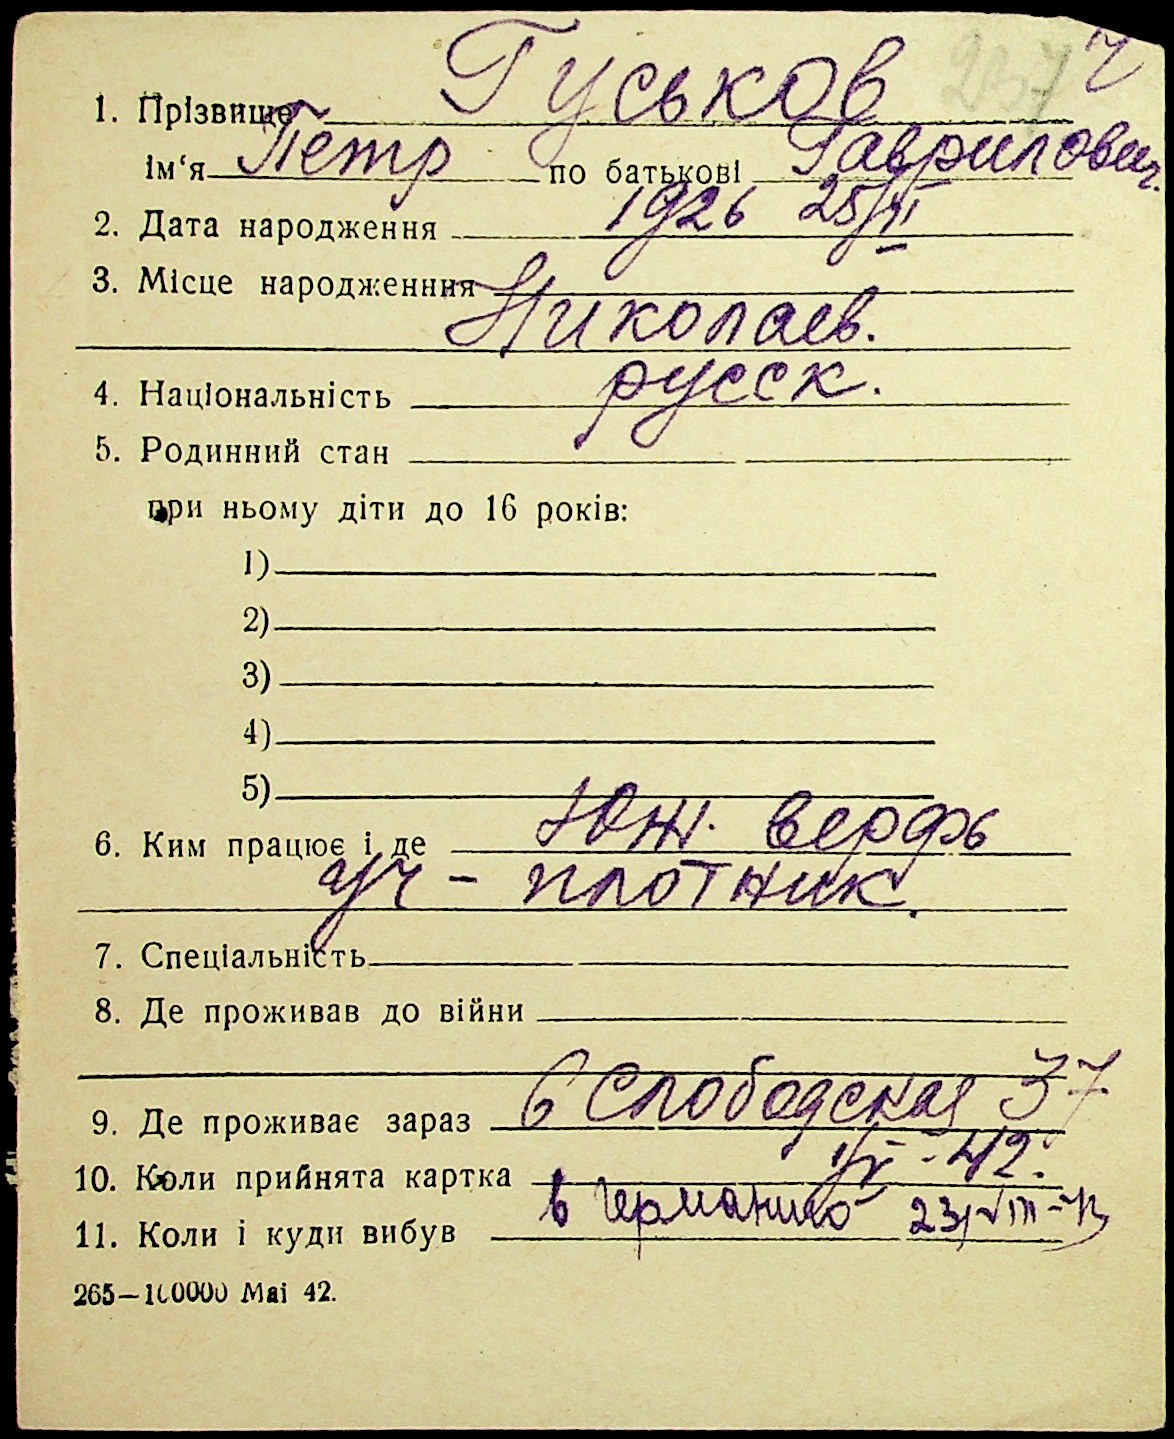 Гуськов
1. Прізвище
ім‘я Петр по батькові Гаврилович.
2. Дата народження 1926 25/VI
3. Місце народженння
Николаев.
4. Національність русск.
5. Родинний стан
при ньому діти до 16 років:
1)
2)
3)
4)
5)
6. Ким працює і де Юж. верфь
уч - плотник.
7. Спеціальність
8. Де проживав до війни
9. Де проживає зараз 6 Слободская 37
10. Коли прийнята картка 42.
11. Коли і куди вибув в Германию 23/VIII-
265—100000 Mai 42.